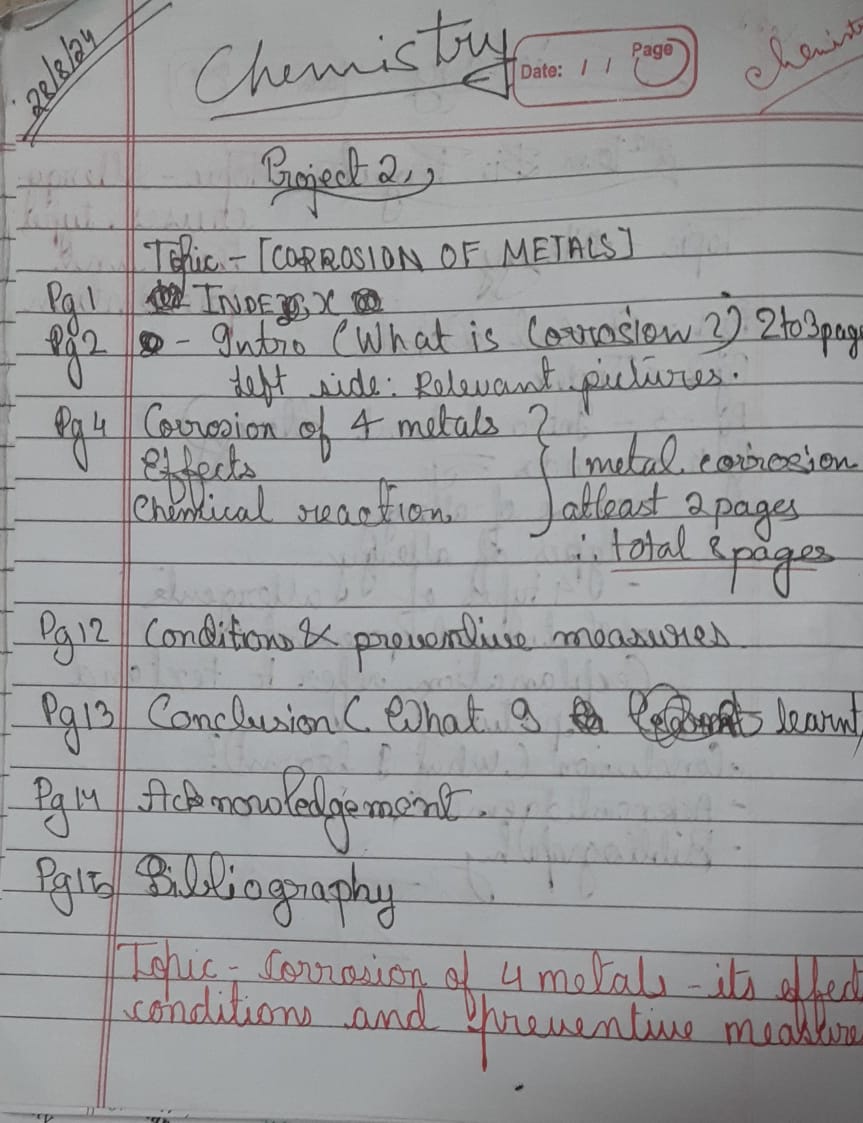 28/8/24
Chemistry
Date: / /
Page
Chemist
Project 2,,
Topic - [CORROSION OF METALS]
Pg1 INDEX
Pg2 - Intro (What is Corrosion?) 2 to 3 page
Left side: Relevant pictures.
Pg4 Corrosion of 4 metals
Effects
Chemical reaction
1 metal corrosion
atleast 2 pages
∴ total 8 pages
Pg12 Conditions & preventive measures
Pg13 Conclusion ( What I learnt
Pg14 Acknowledgement.
Pg15 Bibliography
Topic - Corrosion of 4 metals - its effect
conditions and preventive measure